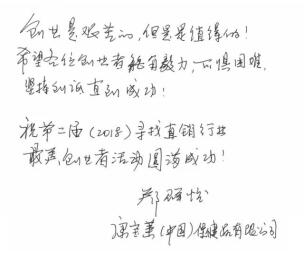 创业是艰苦的，但是是值得的！
希望各位创业者能有毅力，不惧困难，
坚持到底直到成功！
祝第二届（2018）寻找直销行业
最美创业者活动圆满成功！
郑
康宝莱（中国）保健品有限公司